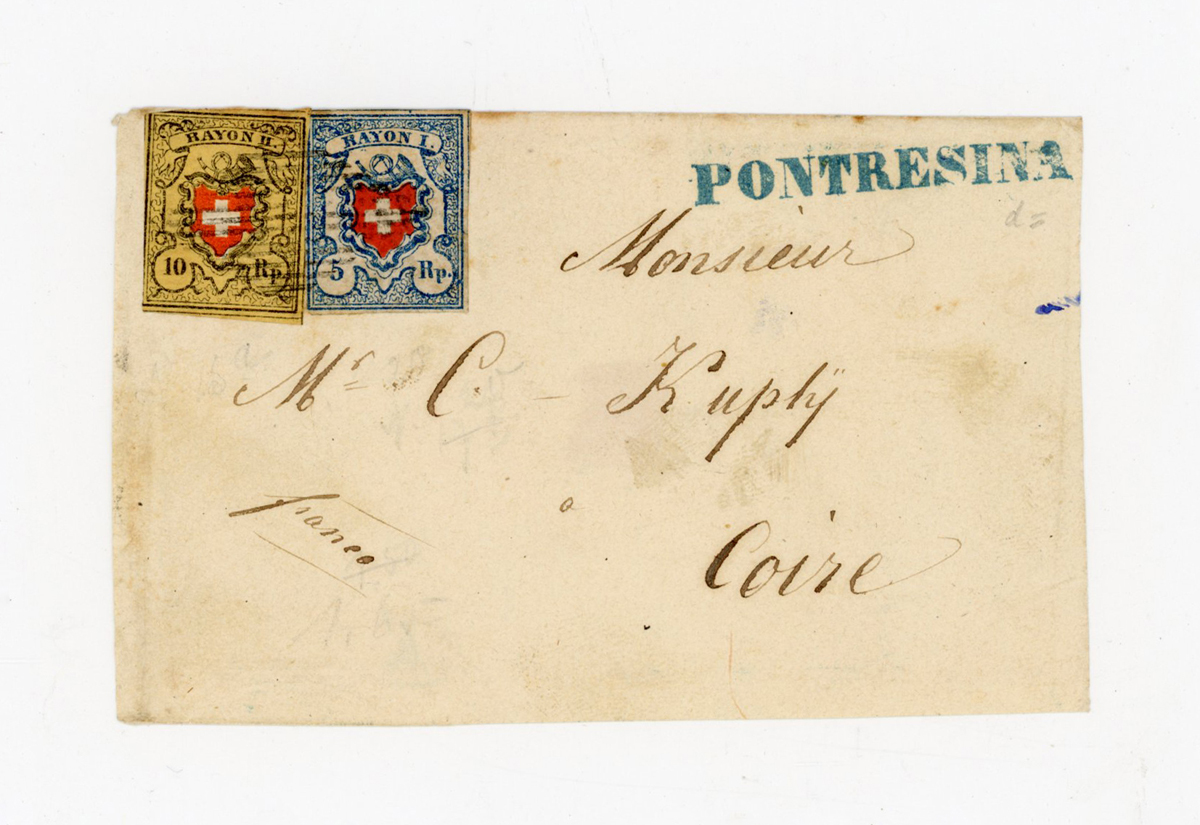 RAYON II. RAYON I.
10 Rp. 5 Rp.
PONTRESINA
d=
Monsieur
Mr C. - Kuplÿ
franco
a
Coire